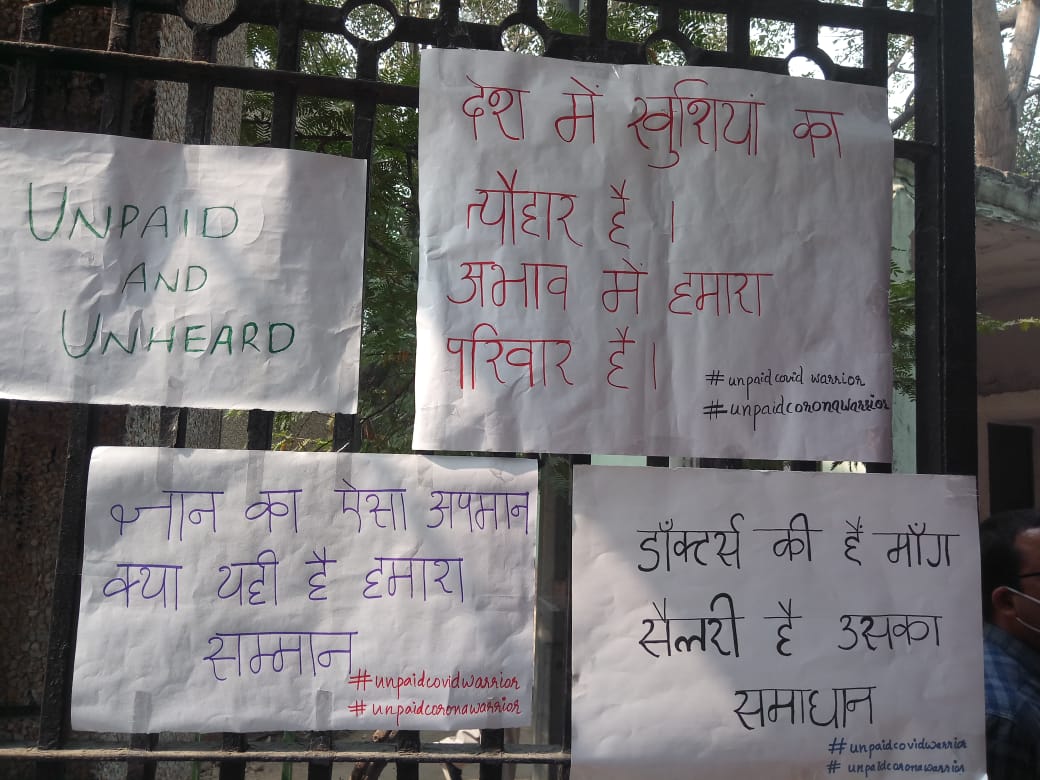 UNPAID
AND
UNHEARD
देश में खुशियां का
त्यौहार है ।
अभाव में हमारा
परिवार है ।
#unpaidcovid warrior
#unpaidcoronawarrior
ज्ञान का ऐसा अपमान
क्या यही है हमारा
सम्मान
#unpaidcovidwarrior
#unpaidcoronawarrior
डॉंक्टर्स की हैं माँग
सैलरी है उसका
समाधान
#unpaidcovidwarrior
#unpaidcoronawarrior